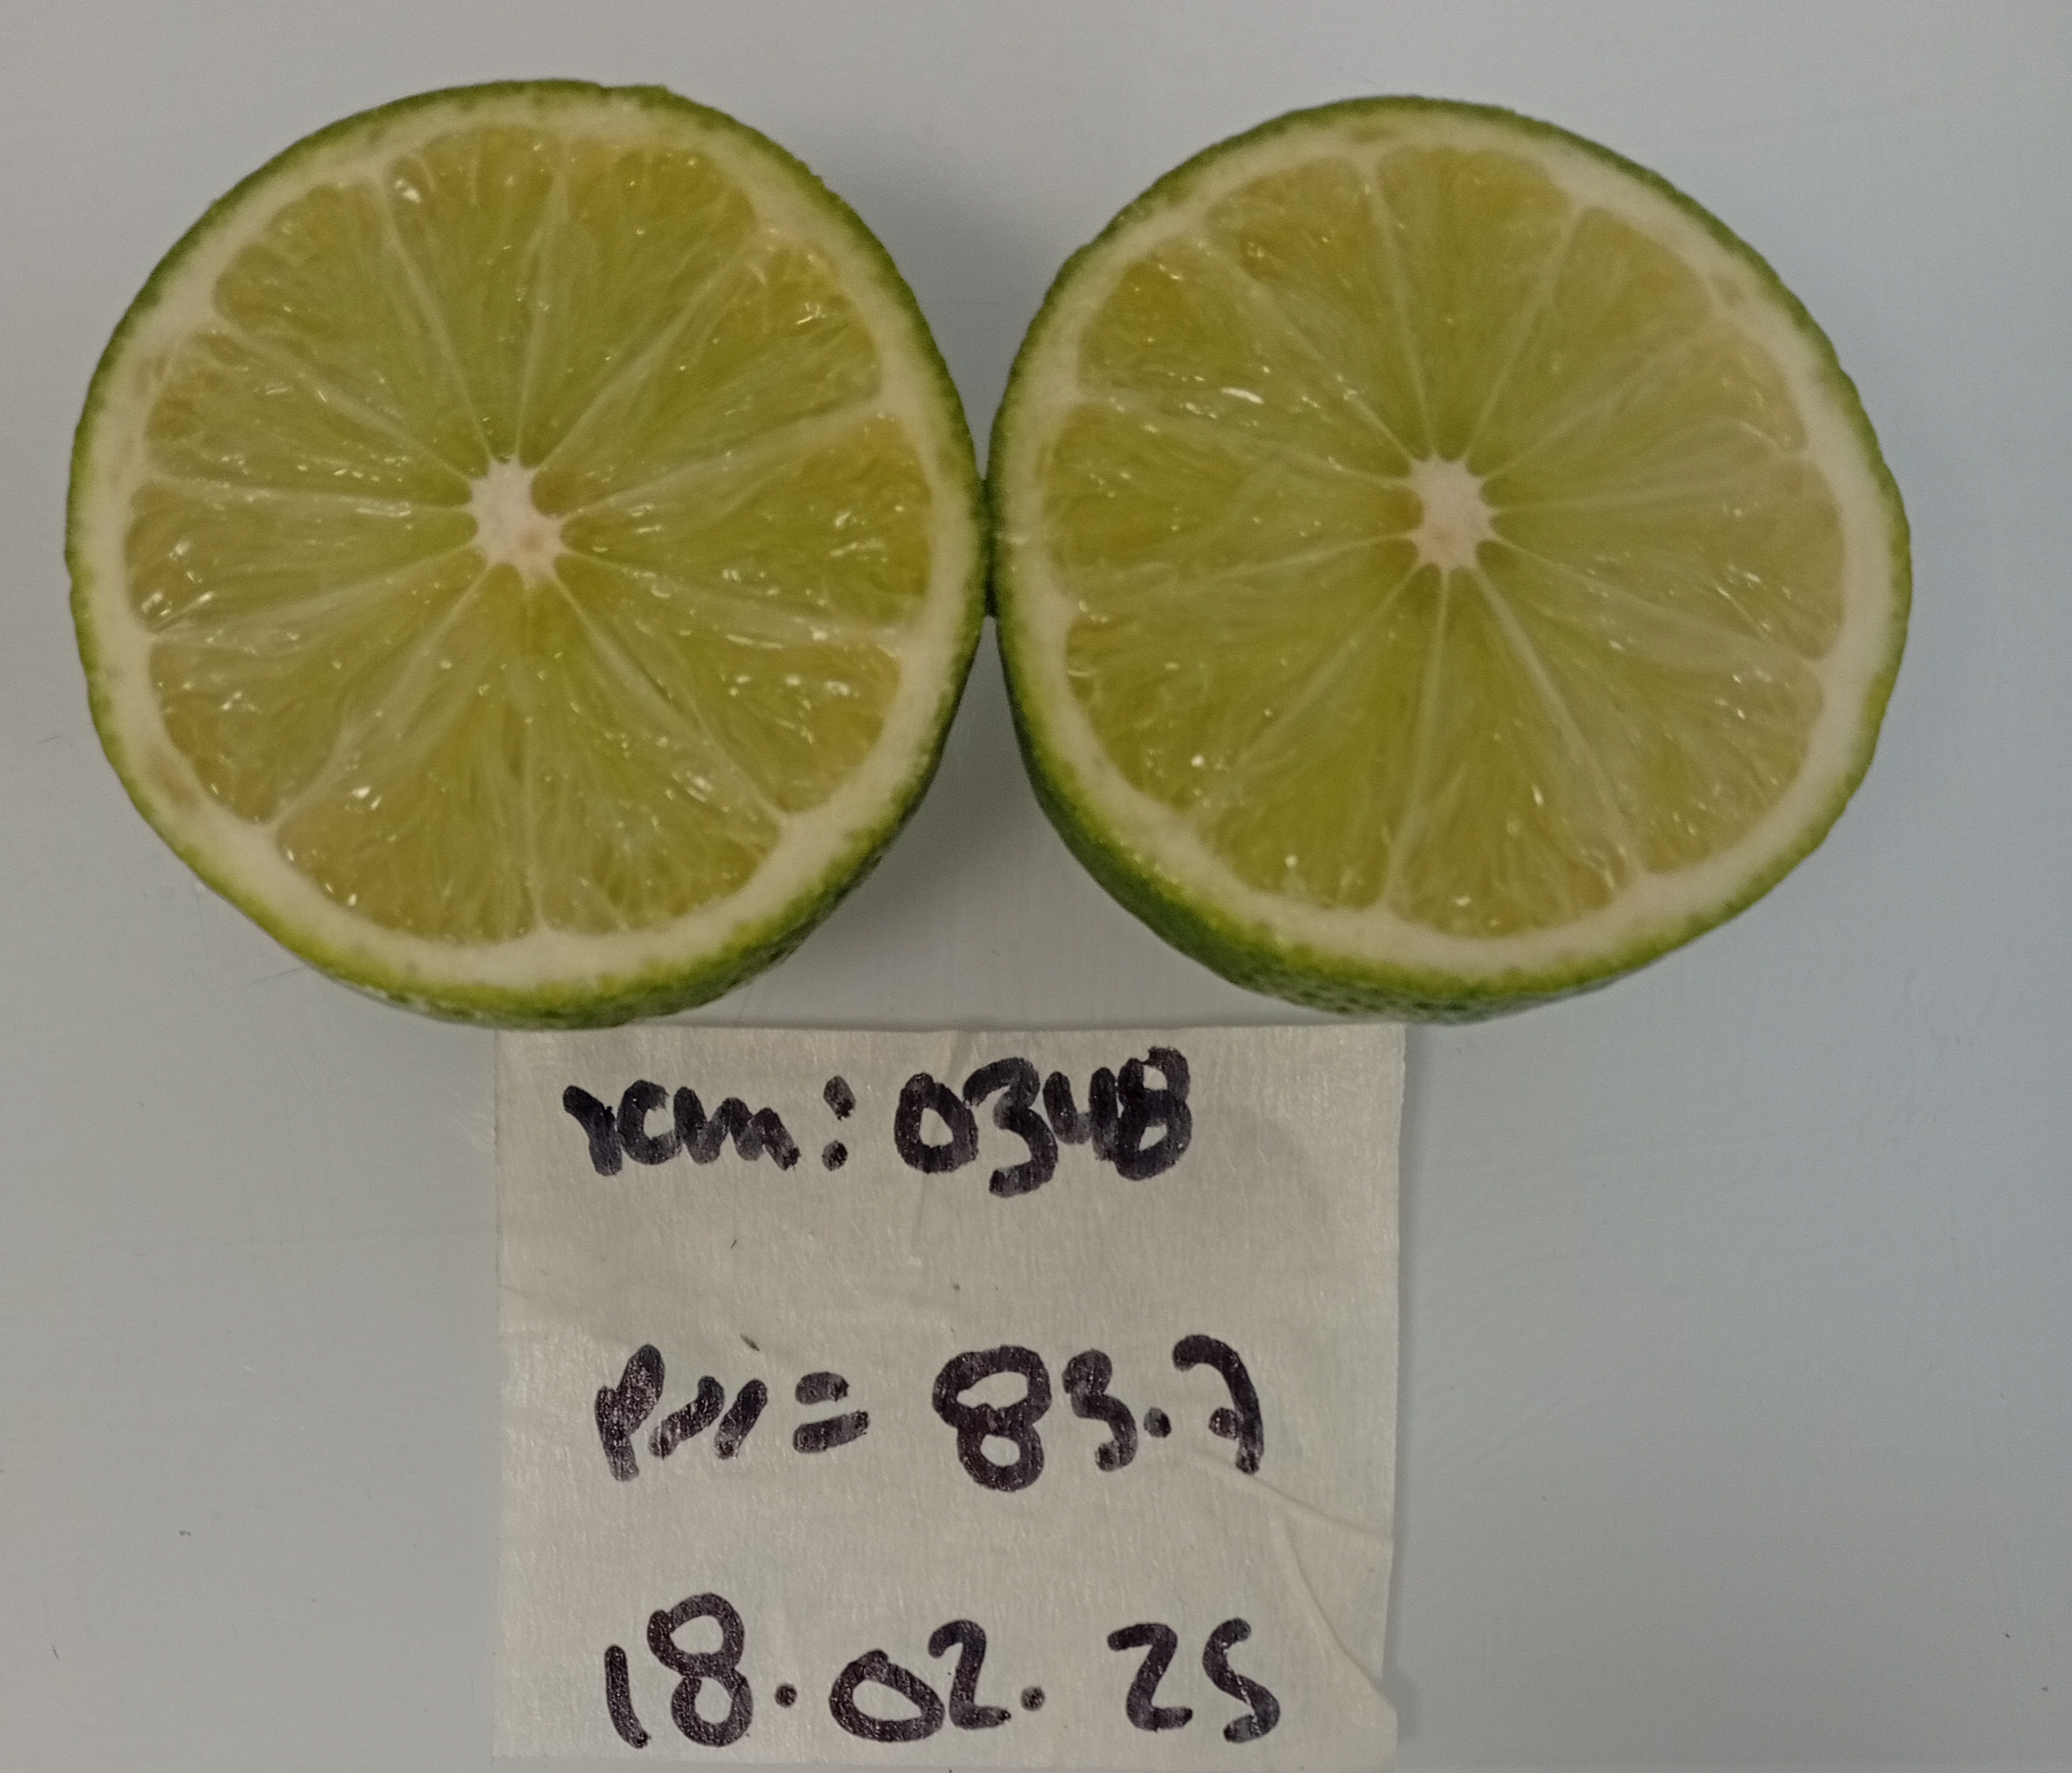 ICM: 0348
= 83.7
18.02.25